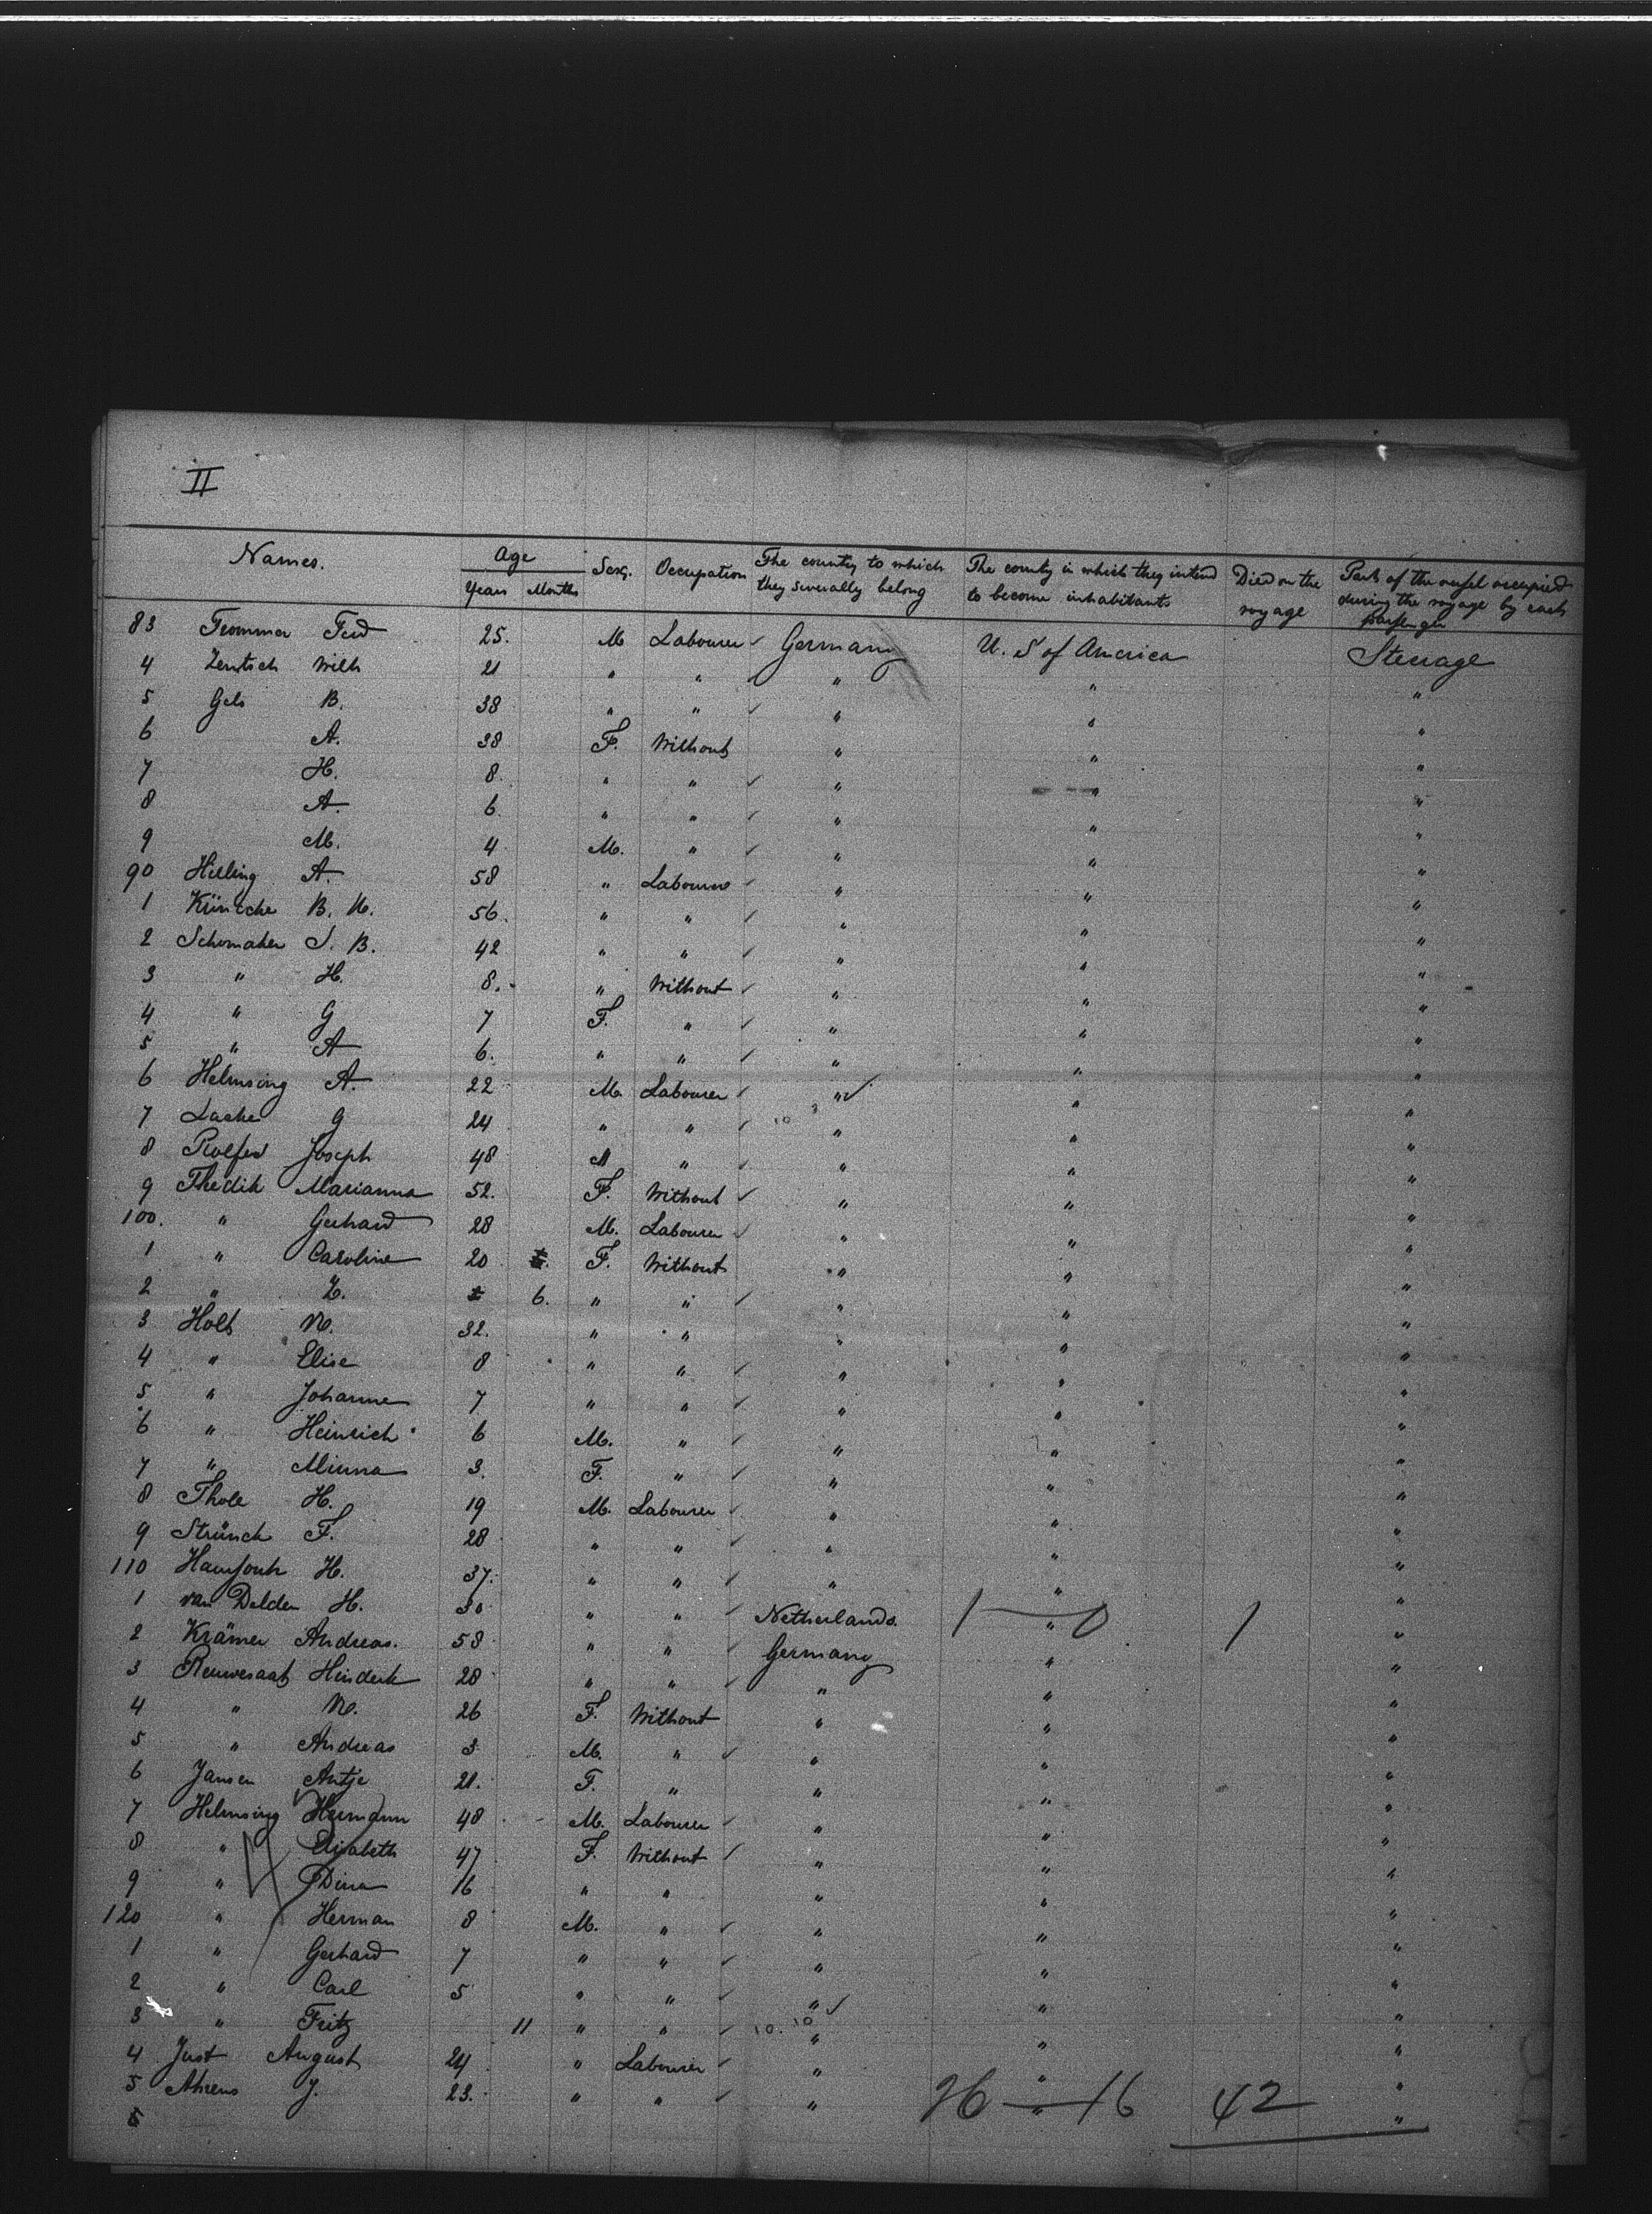 II
Names. Age Sex. Occupation The country to which The country in which they intend Died on the Part of the vessel occupied
Years Months they severally belong to become inhabitants voyage during the voyage by each
passenger
83 Frommer Ferd 25. M Labourer ✓ Germany U. S of America Steerage
4 Zentsch Wilh 21 " " ✓ " " "
5 Gels B. 38 " " ✓ " " "
6 A. 38 F. Without " " "
7 H. 8. " " ✓ " " "
8 A. 6. " " ✓ " " "
9 M. 4 M. " ✓ " " "
90 Hilling A. 58 " Labourer ✓ " " "
1 B. H. 56. " " ✓ " " "
2 Schomaker J. B. 42 " " ✓ " " "
3 " H. 8. " Without ✓ " " "
4 " G 7 F. " ✓ " " "
5 " A 6. " " ✓ " " "
6 Helmsing A. 22 M. Labourer ✓ " ✓ " "
7 G 24 " " ✓ " " "
8 Rolfes Joseph 48 M " ✓ " " "
9 Thedik Marianna 52. F. Without ✓ " " "
100. " Gerhard 28 M. Labourer ✓ " " "
1 " Caroline 20 F. Without " " "
2 " 6. " " ✓ " " "
3 Holt M. 32. " " " " "
4 " Elise 8 " " ✓ " " "
5 " Johanne 7 " " ✓ " " "
6 " Heinrich 6 M. " ✓ " " "
7 " Minna 3. F. " ✓ " " "
8 Thole H. 19 M. Labourer ✓ " " "
9 Strünck F. 28 " " ✓ " " "
110 H. 37. " " ✓ " " "
1 van Delden H. 30 " " ✓ Netherlands. 1 — 0 " 1 "
2 Krämer Andreas. 58 " " ✓ Germany " "
3 Reuwesaat Hinderk 28 " " ✓ " " "
4 " M. 26 F. Without " " "
5 " Andreas 3 M. " ✓ " " "
6 Jansen Antje 21. F. " " " "
7 Helmsing Hermann 48 M. Labourer ✓ " " "
8 " Elisabeth 47 F. Without ✓ " " "
9 " Dina 16 " " " " "
120 " Herman 8 M. " ✓ " " "
1 " Gerhard 7 " " ✓ " " "
2 " Carl 5 " " ✓ " ✓ " "
3 " Fritz 11 " " ✓ 10. 10 " " "
4 Just August 24 " Labourer ✓ " " "
5 Ahrens J. 23. " " ✓ " 26 — 16 " 42 "